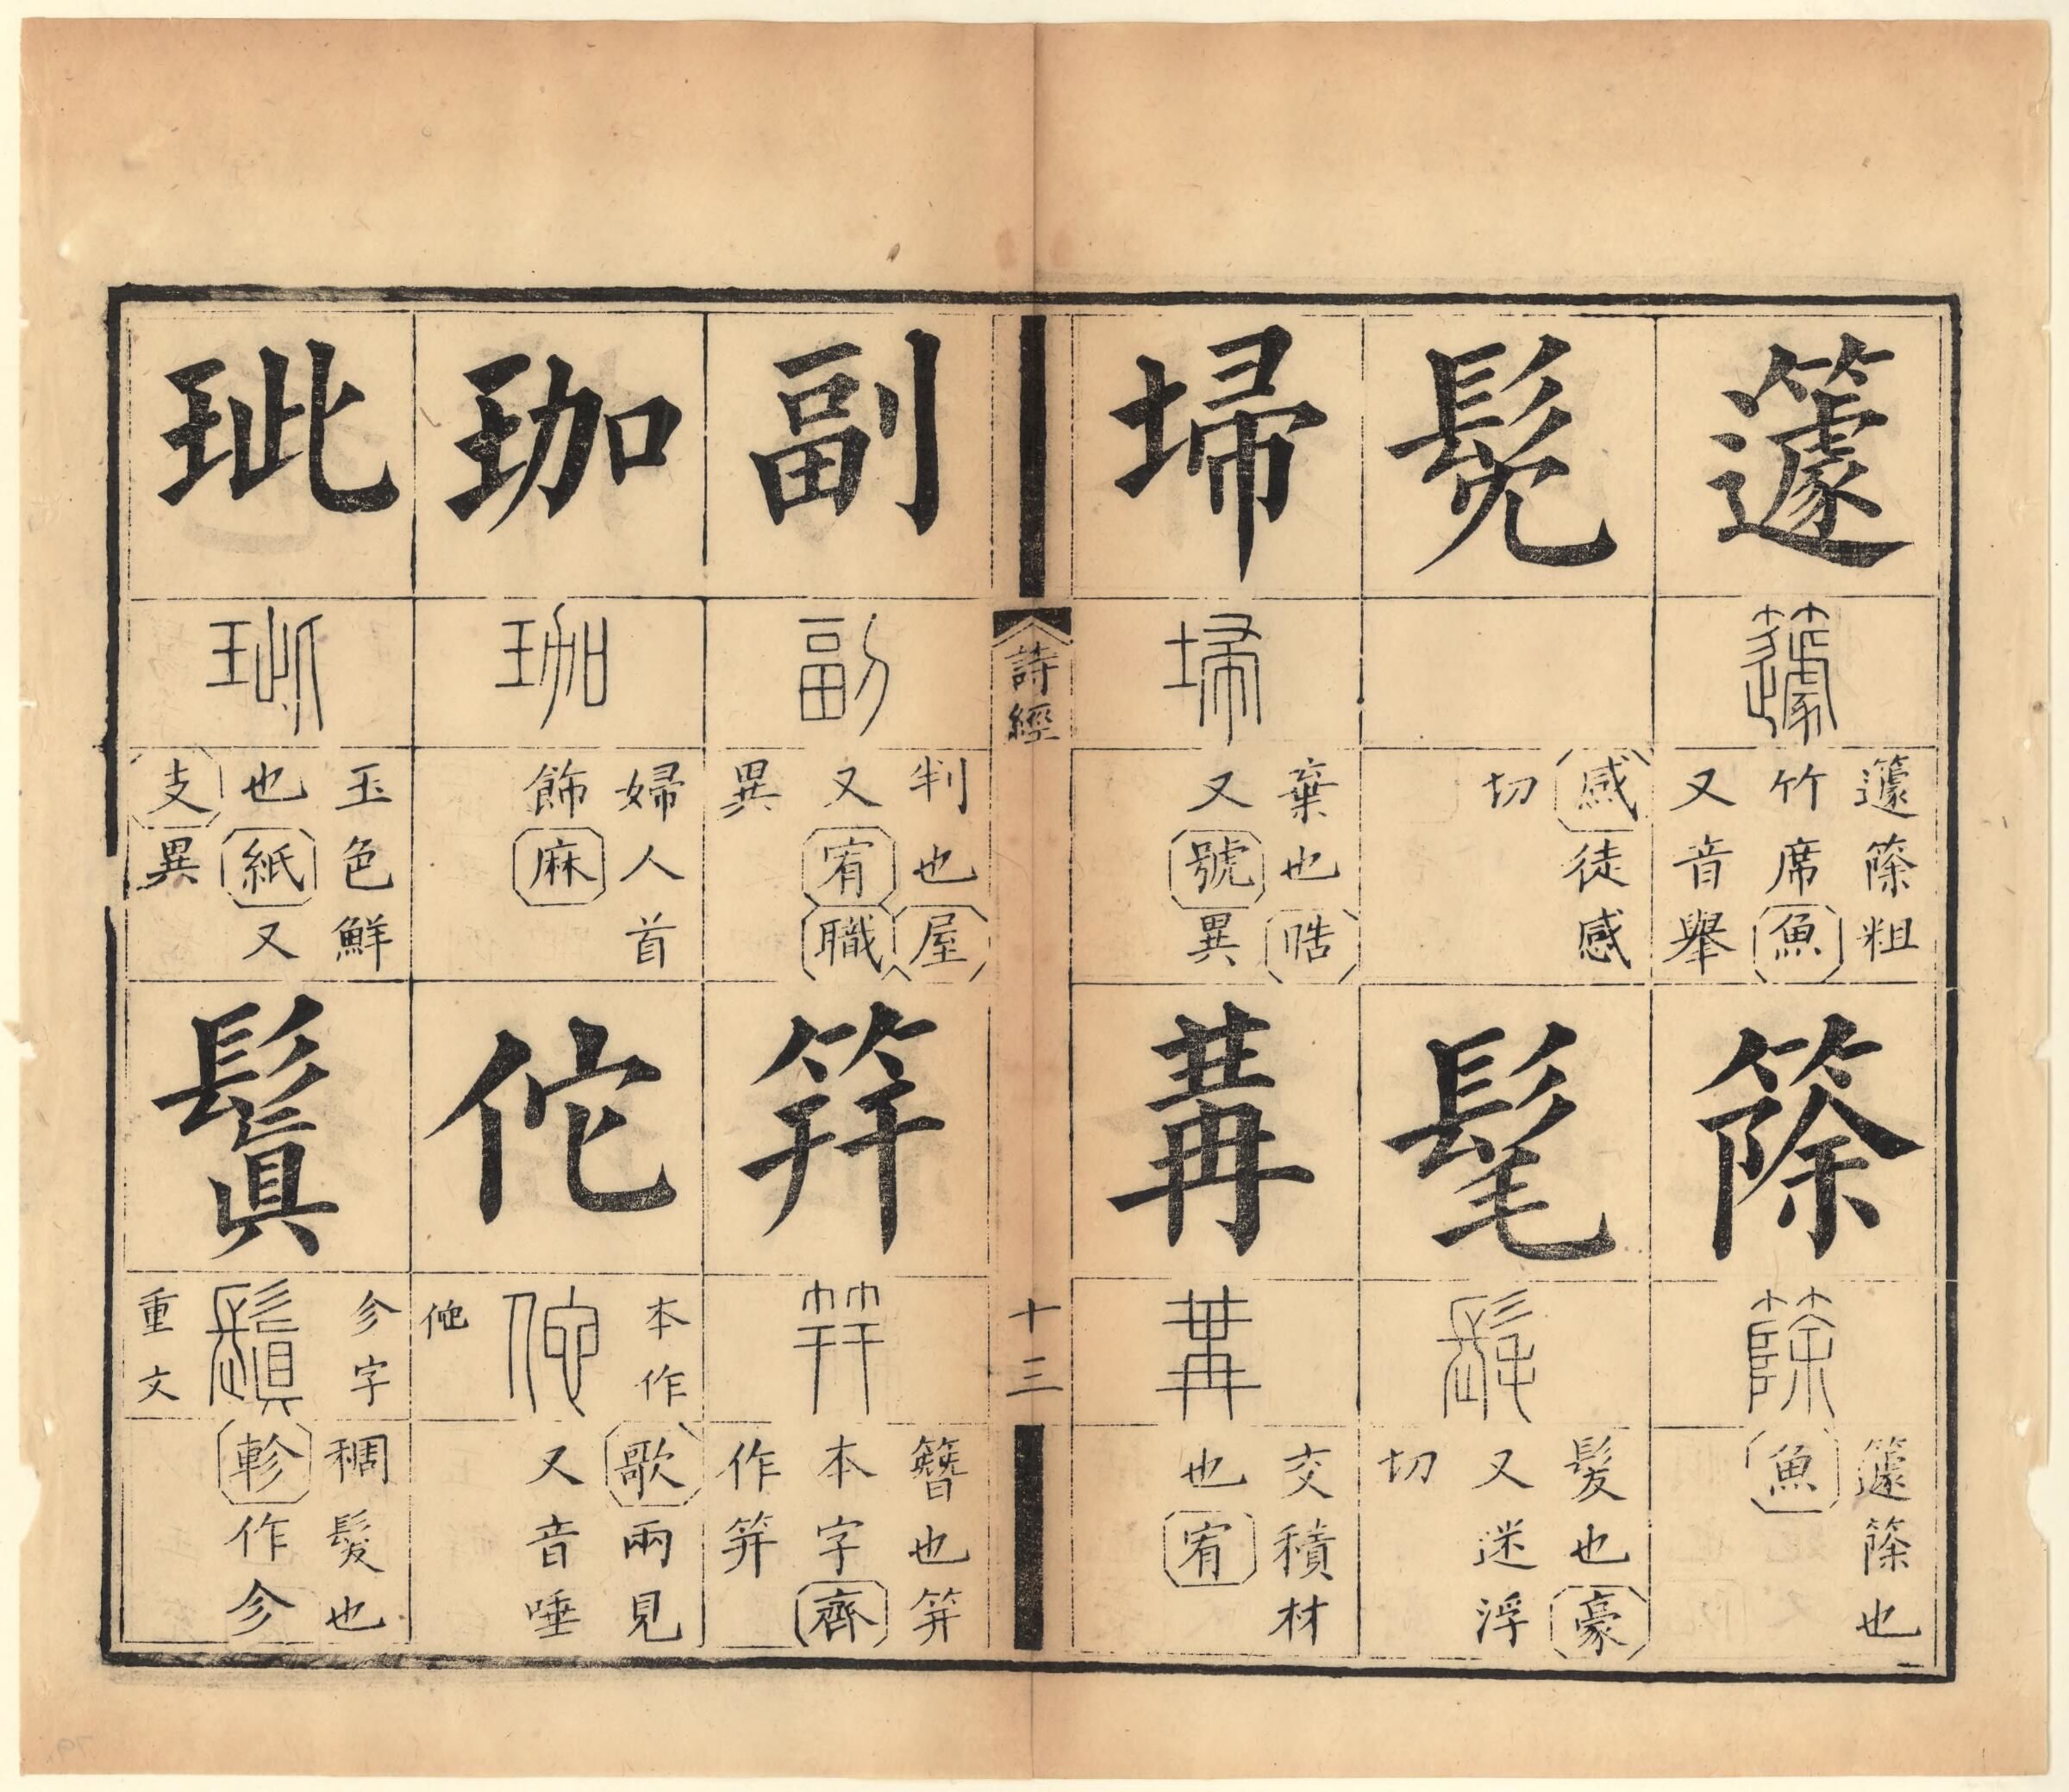 籧
籧
籧篨粗
竹席魚
又音舉
篨
篨
籧篨也
魚
髧
感徒感
切
髦
髦
髮也豪
又迷浮
切
埽
埽
棄也晧
又號異
冓
冓
交積材
也宥
詩經
十三
副
副
判也屋
又宥職
異
筓
筓
簪也筓
本字齊
作筓
珈
珈
婦人首
飾麻
佗
本作
佗
歌兩見
又音唾
玼
玼
玉色鮮
也紙又
支異
鬒
㐱字
鬒
重文
稠髮也
軫作㐱